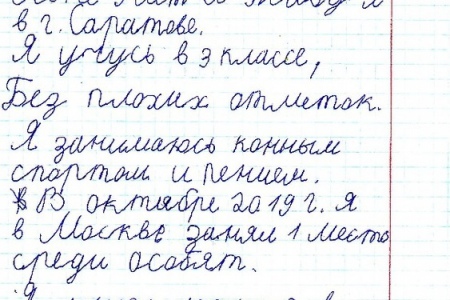 в г. Саратове.
Я учусь в 3 классе,
Без плохих отметок.
Я занимаюсь конным
спортом и пением.
В октябре 2019 г. я
в Москве занял 1 место
среди особят.
Я